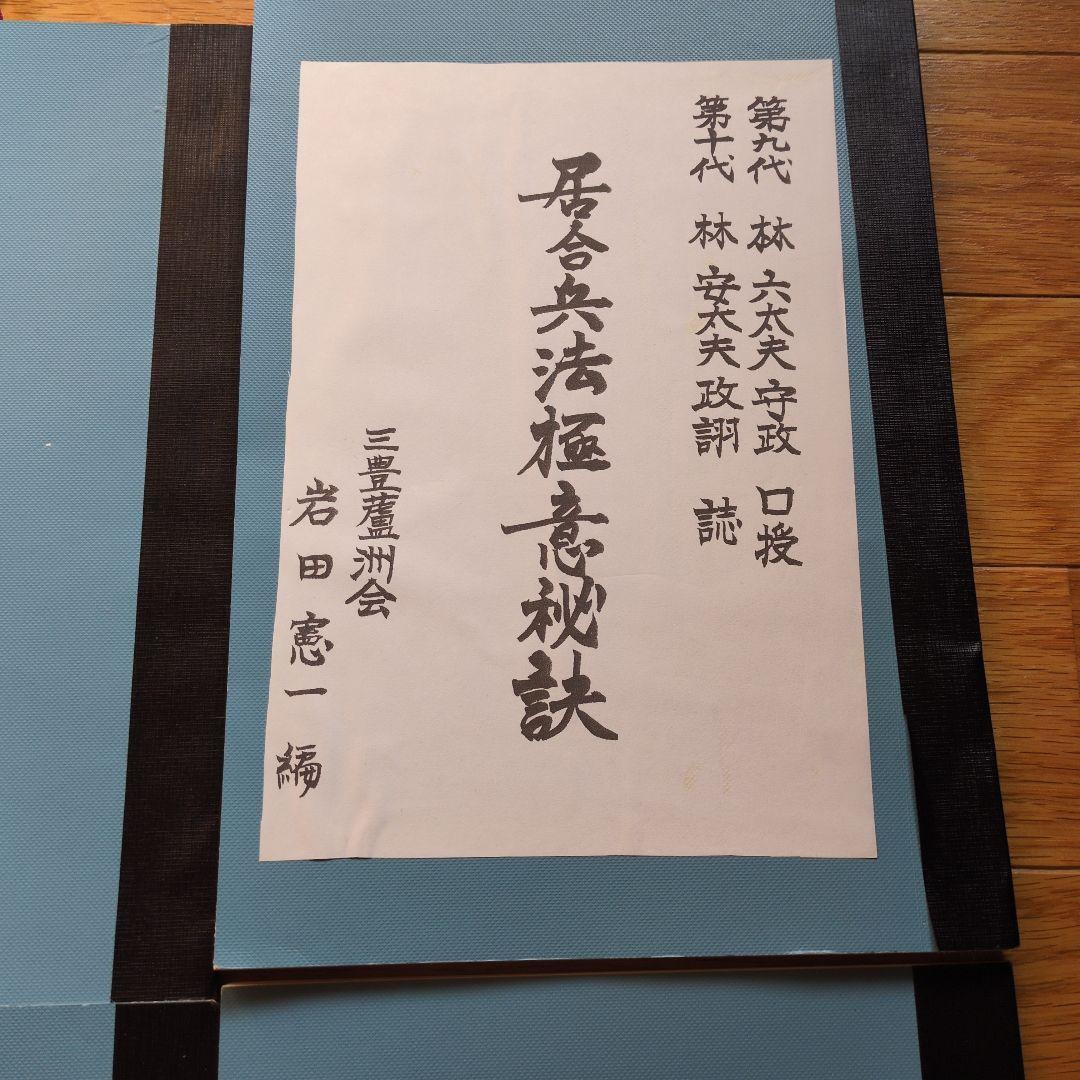 第九代 林 六太夫守政 口授
第十代 林 安太夫政詡 誌
居合兵法極意秘訣
三豊蘆洲会
岩田憲一編